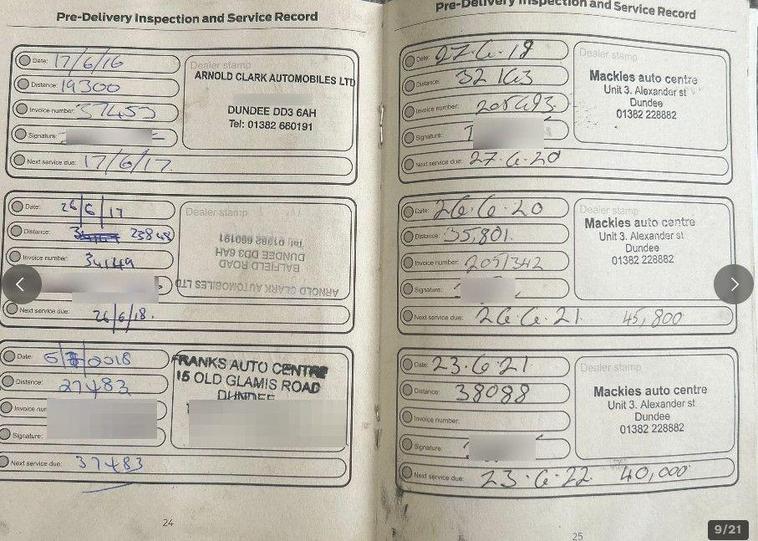 Pre-Delivery Inspection and Service Record
Date: 17/6/16
Distance: 19300
Invoice number: 37453
Signature:
Next service due: 17/6/17.
Dealer stamp
ARNOLD CLARK AUTOMOBILES LTD
DUNDEE DD3 6AH
Tel: 01382 660191
Date: 26/6/17
Distance: 23848
Invoice number: 34149
Next service due: 26/6/18.
Dealer stamp
ARNOLD CLARK AUTOMOBILES LTD
BALFIELD ROAD
DUNDEE DD3 6AH
Tel: 01382 660191
Date:
Distance: 27483
Invoice num
Signature:
Next service due: 37483
FRANKS AUTO CENTRE
15 OLD GLAMIS ROAD
DUNDEE
24
Pre-Delivery Inspection and Service Record
Date: 27.6.18
Distance: 32163
Invoice number:
Signature:
Next service due: 27.6.20
Dealer stamp
Mackies auto centre
Unit 3. Alexander st
Dundee
01382 228882
Date: 26.6.20
Distance: 35,801.
Invoice number: 2051342
Signature:
Next service due: 26.6.21 45,800
Dealer stamp
Mackies auto centre
Unit 3. Alexander st
Dundee
01382 228882
Date: 23.6.21
Distance: 38088
Invoice number:
Signature:
Next service due: 23.6.22 40,000
Dealer stamp
Mackies auto centre
Unit 3. Alexander st
Dundee
01382 228882
25
9/21